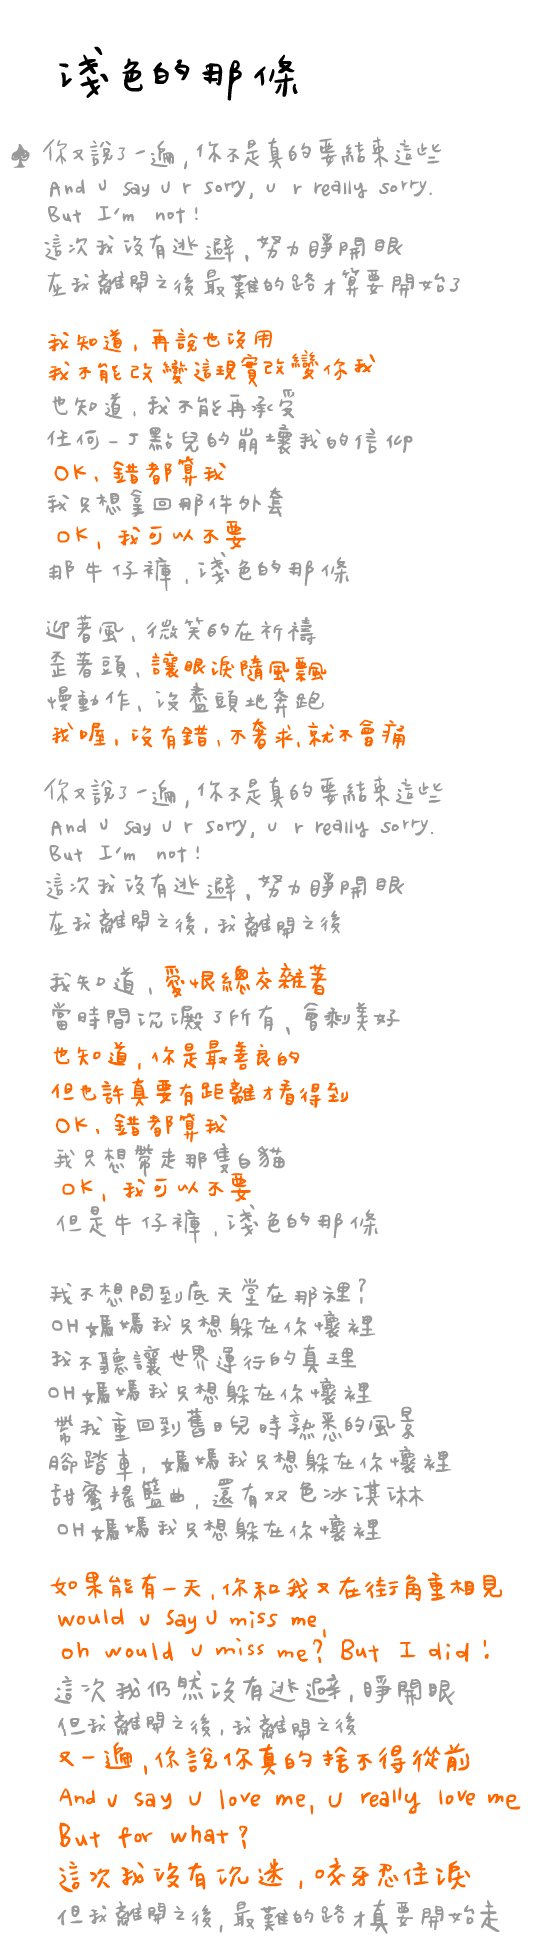 淺色的那條
♠ 你又說了一遍, 你不是真的要結束這些
And u say u r sorry, u r really sorry.
But I'm not!
這次我沒有逃避, 努力睜開眼
在我離開之後最難的路才算要開始了
我知道, 再說也沒用
我不能改變這現實改變你我
也知道, 我不能再承受
任何一丁點兒的崩壞我的信仰
OK, 錯都算我
我只想拿回那件外套
OK, 我可以不要
那牛仔褲, 淺色的那條
迎著風, 微笑的在祈禱
歪著頭, 讓眼淚隨風飄
慢動作, 沒盡頭地奔跑
我喔, 沒有錯, 不奢求, 就不會痛
你又說了一遍, 你不是真的要結束這些
And u say u r sorry, u r really sorry.
But I'm not!
這次我沒有逃避, 努力睜開眼
在我離開之後, 我離開之後
我知道, 愛恨總交雜著
當時間沉澱了所有, 會剩美好
也知道, 你是最善良的
但也許真要有距離才看得到
OK, 錯都算我
我只想帶走那隻白貓
OK, 我可以不要
但是牛仔褲, 淺色的那條
我不想問到底天堂在那裡?
OH 媽媽我只想躲在你懷裡
我不聽讓世界運行的真理
OH 媽媽我只想躲在你懷裡
帶我重回到舊日兒時熟悉的風景
腳踏車, 媽媽我只想躲在你懷裡
甜蜜搖籃曲, 還有双色冰淇淋
OH 媽媽我只想躲在你懷裡
如果能有一天, 你和我又在街角重相見
would u say u miss me,
oh would u miss me? But I did!
這次我仍然沒有逃避, 睜開眼
但我離開之後, 我離開之後
又一遍, 你說你真的捨不得從前
And u say u love me, u really love me
But for what?
這次我沒有沉迷, 咬牙忍住淚
但我離開之後, 最難的路才真要開始走